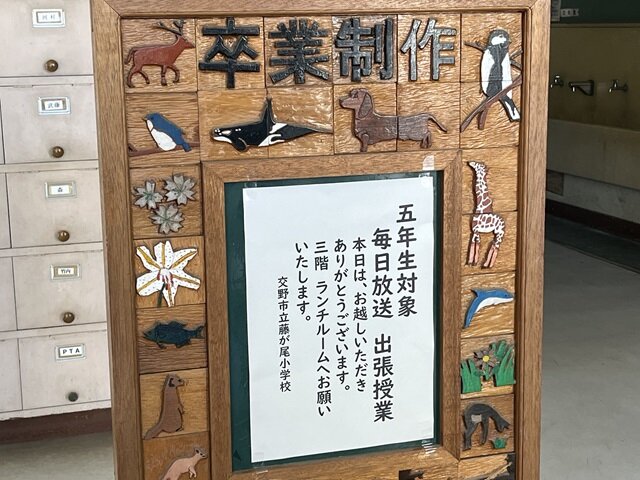 卒業制作
五年生対象
毎日放送 出張授業
本日は、お越しいただき
ありがとうございます。
三階 ランチルームへお願い
いたします。
交野市立藤が尾小学校
武藤
森
竹内
PTA